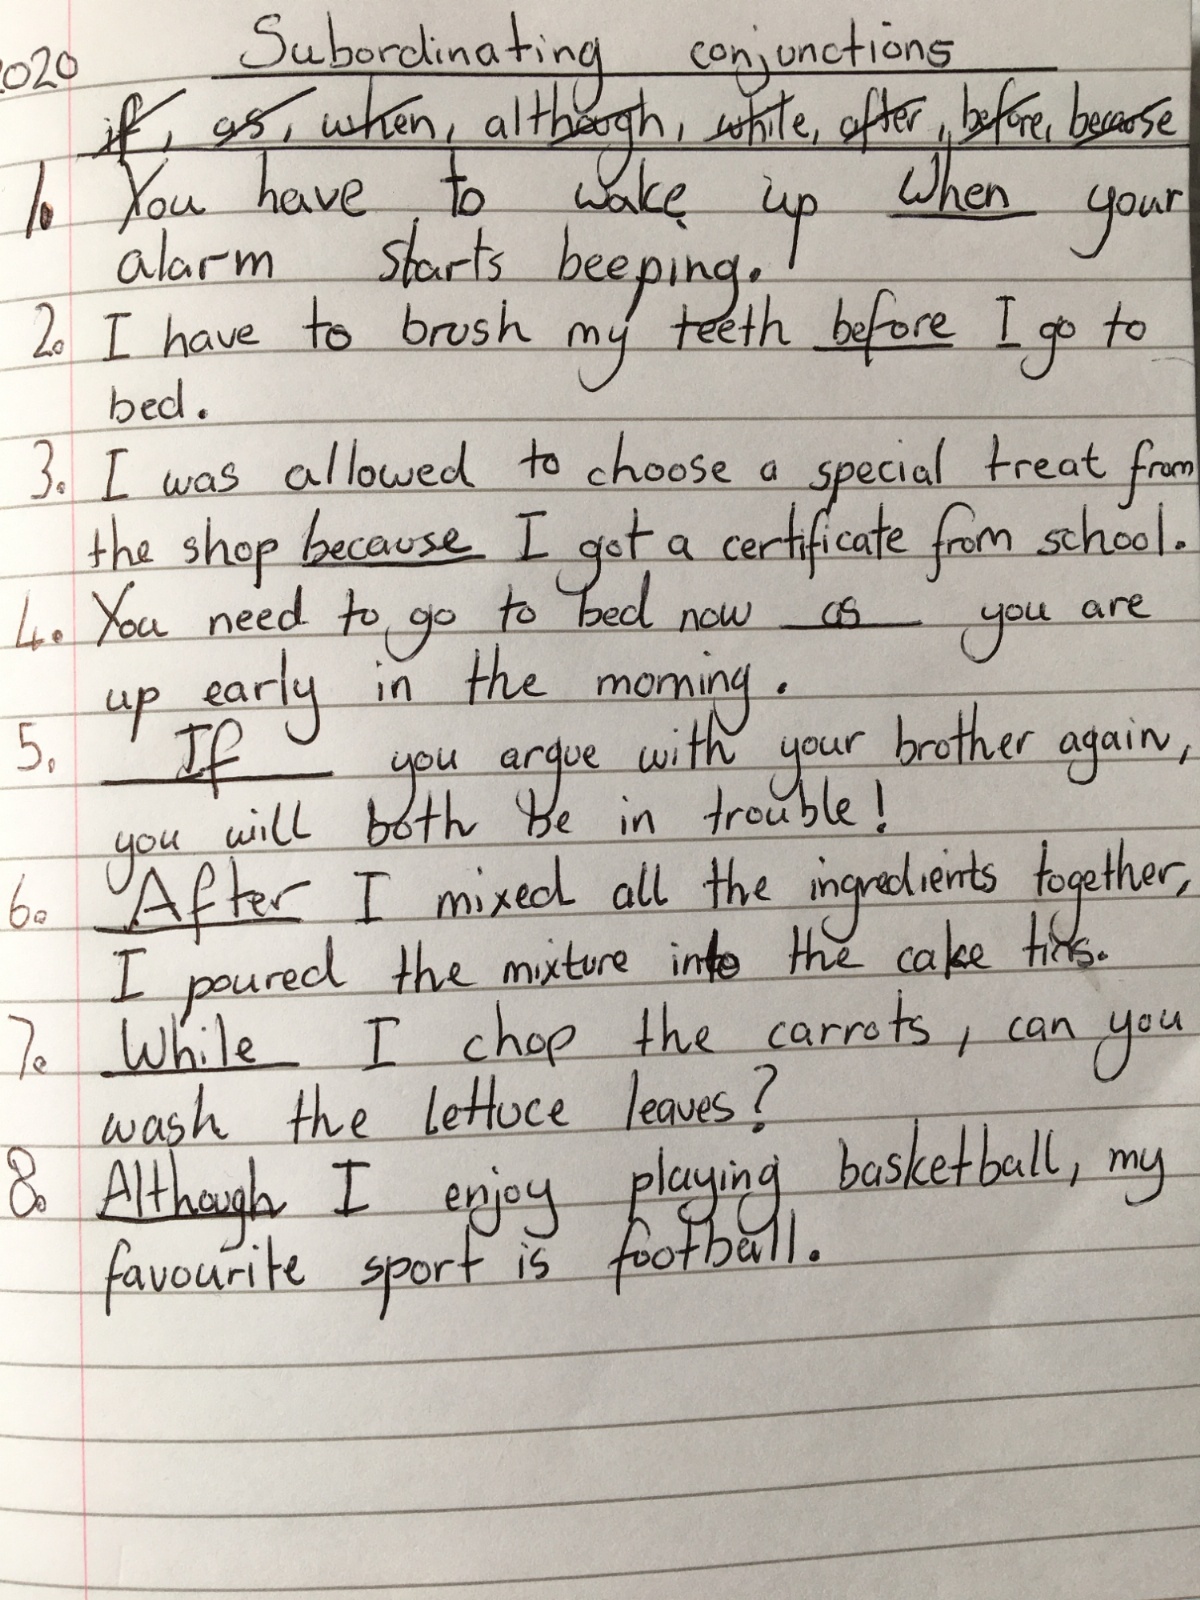 2020 Subordinating conjunctions
if, as, when, although, while, after, before, because
1. You have to wake up when your
alarm starts beeping.
2. I have to brush my teeth before I go to
bed.
3. I was allowed to choose a special treat from
the shop because I got a certificate from school.
4. You need to go to bed now as you are
up early in the morning.
5. If you argue with your brother again,
you will both be in trouble!
6. After I mixed all the ingredients together,
I poured the mixture into the cake tins.
7. While I chop the carrots, can you
wash the lettuce leaves?
8. Although I enjoy playing basketball, my
favourite sport is football.